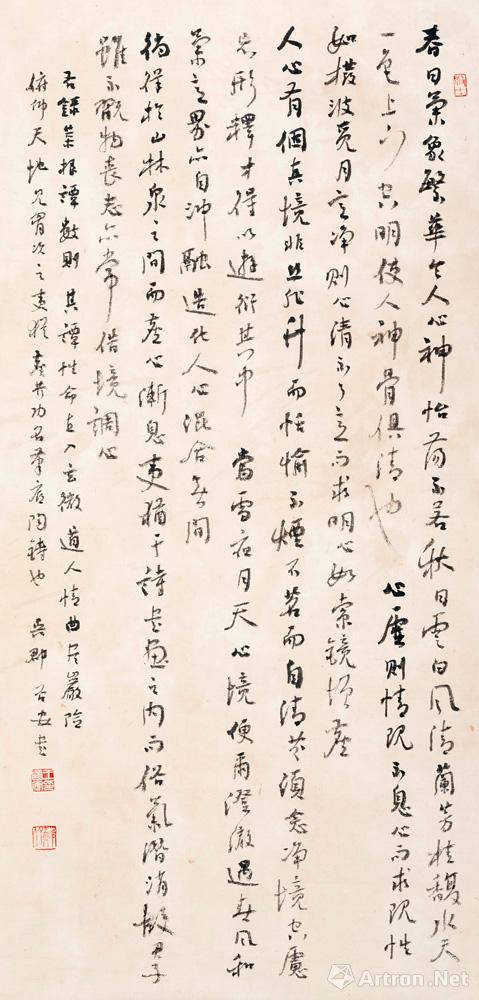 春日氣象繁華令人心神怡蕩不若秋日雲白風清蘭芳桂馥水天
一色上下空明使人神骨俱清也 心虛則情現不息心而求現性
如撥波覓月意淨則心清不了意而求明心如索鏡增塵
人心有個真境非絲非竹而恬愉不煙不茗而自清芬須念淨境空慮
忘形釋才得以遊衍其中 當雪夜月天心境便爾澄澈遇春風和
氣意界亦自沖融造化人心混合無間
徜徉於山林泉之間而塵心漸息夷猶于詩書畫之內而俗氣潛消故君子
雖不翫物喪志亦常借境調心
右錄菜根譚數則 其譚性命直入玄微 道人情曲盡嚴險
俯仰天地見胸次之夷猶塵芥功名筆底陶鑄也 吳郡 谷安書
Artron.Net